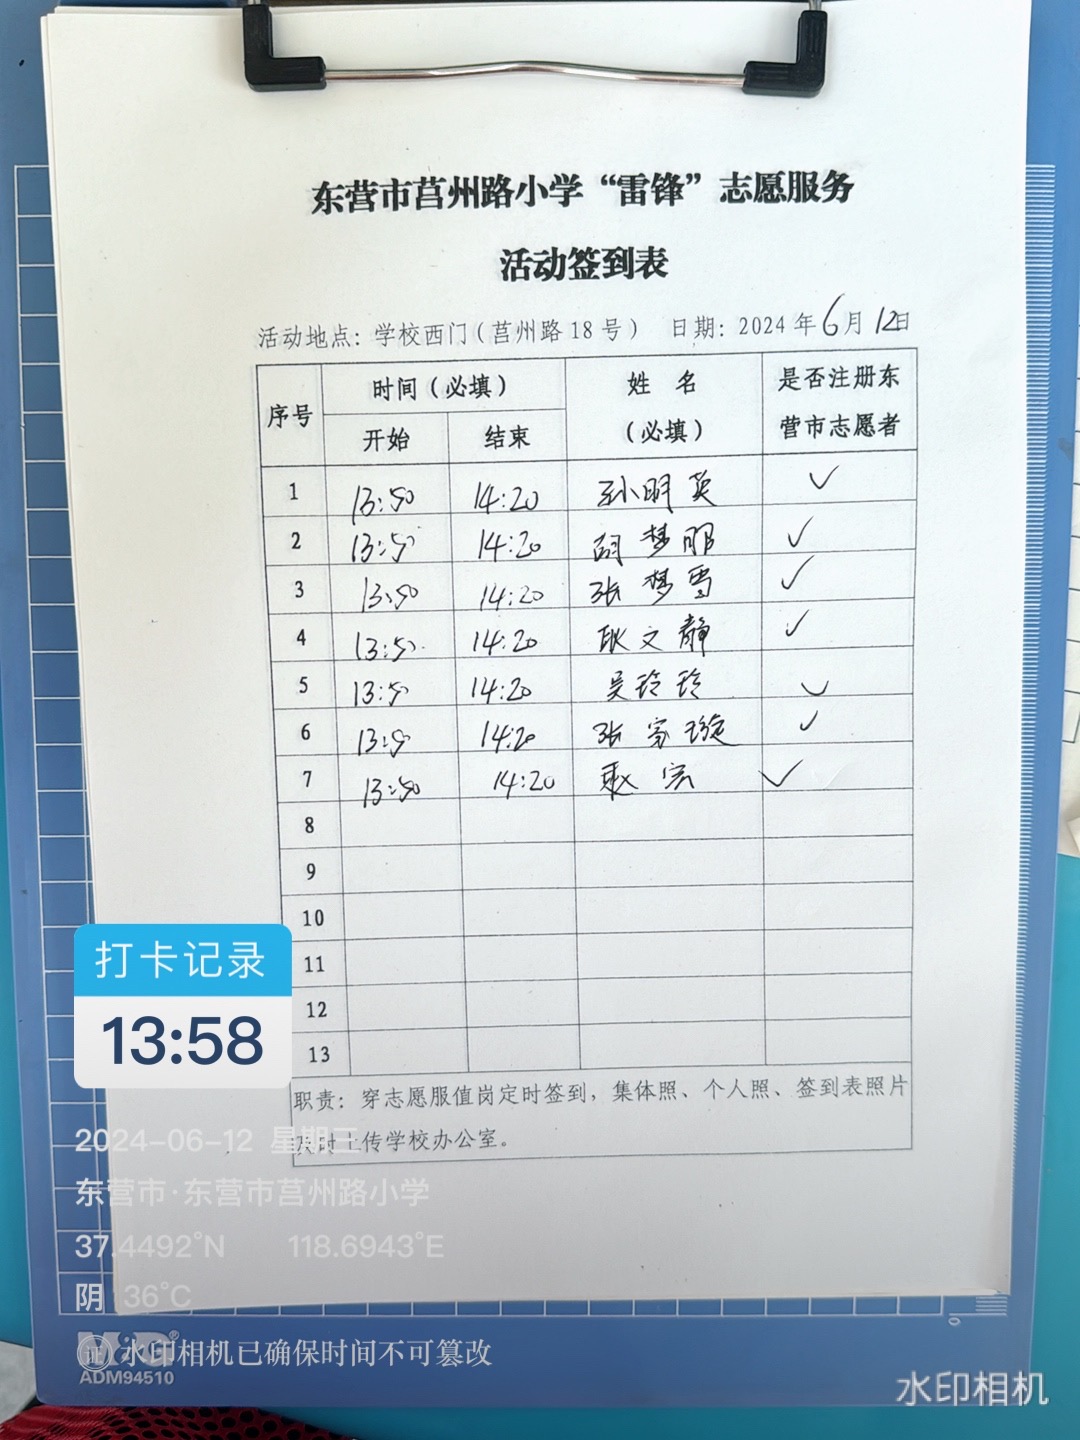 东营市莒州路小学“雷锋”志愿服务
活动签到表
活动地点：学校西门（莒州路18号） 日期：2024年6月12日
序号 时间（必填） 姓 名 是否注册东
开始 结束 （必填） 营市志愿者
1 13:50 14:20 孙明英 ✓
2 13:50 14:20 胡梦 ✓
3 13:50 14:20 张梦雪 ✓
4 13:50 14:20 耿文静 ✓
5 13:50 14:20 吴玲玲 ✓
6 13:50 14:20 张家璇 ✓
7 13:50 14:20 ✓
8
9
10
11
12
13
职责：穿志愿服值岗定时签到，集体照、个人照、签到表照片
及时上传学校办公室。
打卡记录
13:58
2024-06-12 星期三
东营市·东营市莒州路小学
37.4492°N 118.6943°E
阴 36°C
M&G®
证 水印相机已确保时间不可篡改
ADM94510
水印相机